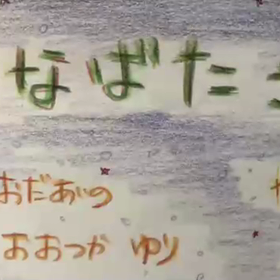 なばた
おだあいの
おおつか ゆり